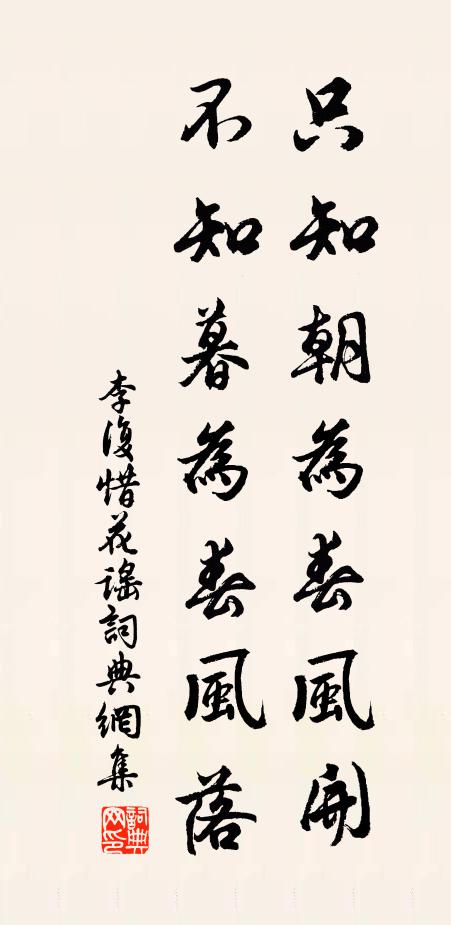 只知朝為春風開
不知暮為春風落
李復惜花謠詞典網集
詞典网印